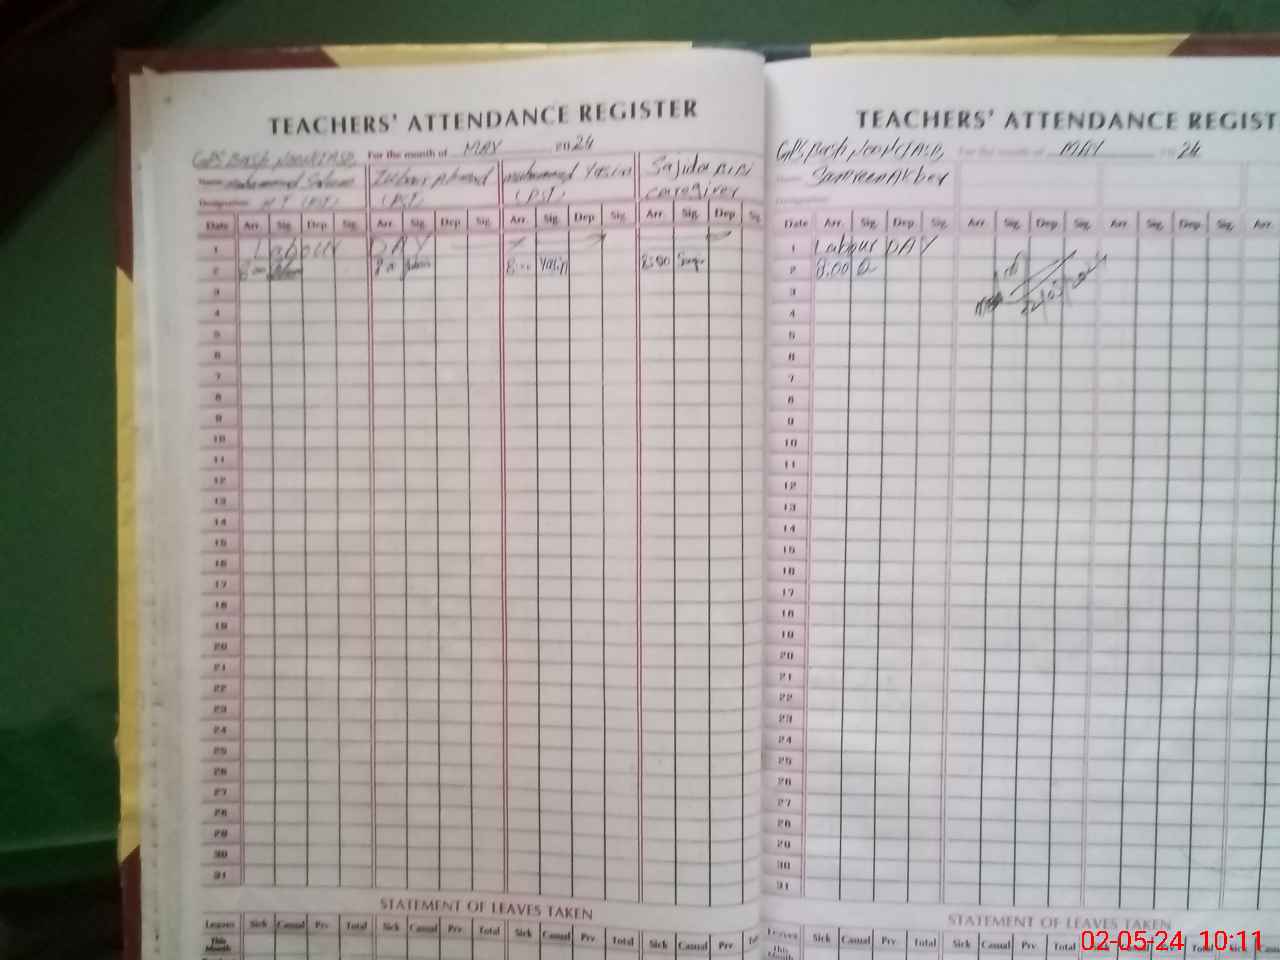 TEACHERS' ATTENDANCE REGISTER
GPS Bash For the month of MAY 2024
Name Muhammad Saleem Zubair Ahmad Muhammad Yasin Sajida BiBi
Designation (PST) (PST) Caregiver
Date Arr. Sig. Dep Sig. Arr. Sig. Dep Sig. Arr. Sig. Dep Sig. Arr. Sig. Dep Sig
1 Labour DAY
2 8:00 8:00 8:00 Yasin 8:00
3
4
5
6
7
8
9
10
11
12
13
14
15
16
17
18
19
20
21
22
23
24
25
26
27
28
29
30
31
STATEMENT OF LEAVES TAKEN
Leaves Sick Casual Prv. Total Sick Casual Prv. Total Sick Casual Prv. Total Sick Casual Prv.
This Month
TEACHERS' ATTENDANCE REGIST
GPS Bash For the month of MAY 24
Name Samreen Akber
Designation
Date Arr. Sig. Dep Sig. Arr. Sig. Dep Sig. Arr. Sig. Dep Sig. Arr.
1 Labour DAY
2 8:00
3
4
5
6
7
8
9
10
11
12
13
14
15
16
17
18
19
20
21
22
23
24
25
26
27
28
29
30
31
STATEMENT OF LEAVES TAKEN
Leaves Sick Casual Prv. Total Sick Casual Prv. Total Sick
This Month
02-05-24 10:11